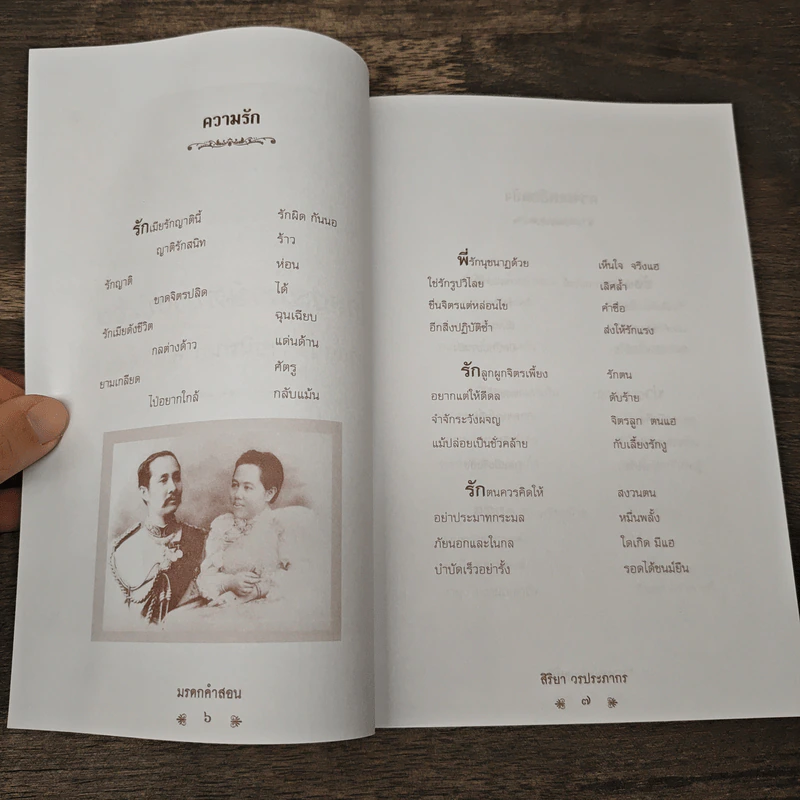 ความรัก
รักเมียรักญาตินี้ รักผิด กันนอ
ญาติรักสนิท ร้าว
รักญาติ ห่อน
ขาดจิตรปลิด ได้
รักเมียดังชีวิต ฉุนเฉียบ
กลต่างด้าว แด่นด้าน
ยามเกลียด ศัตรู
ไป่อยากใกล้ กลับแม้น
มรดกคำสอน
๖
พี่รักนุชนาฏด้วย เห็นใจ จริงแฮ
ใช่รักรูปวิไลย เลิศล้ำ
ชื่นจิตรแต่หล่อนไข คำชื่อ
อีกสิ่งปฏิบัติซ้ำ ส่งให้รักแรง
รักลูกผูกจิตรเพี้ยง รักตน
อยากแต่ให้ดีดล ดับร้าย
จำจักระวังผจญ จิตรลูก ตนแฮ
แม้ปล่อยเป็นชั่วคล้าย กับเลี้ยงรักงู
รักตนควรคิดให้ สงวนตน
อย่าประมาทกระมล หมื่นพลั้ง
ภัยนอกและในกล ใดเกิด มีแฮ
บำบัดเร็วอย่ารั้ง รอดได้ชนม์ยืน
สิริยา วรประภากร
๗